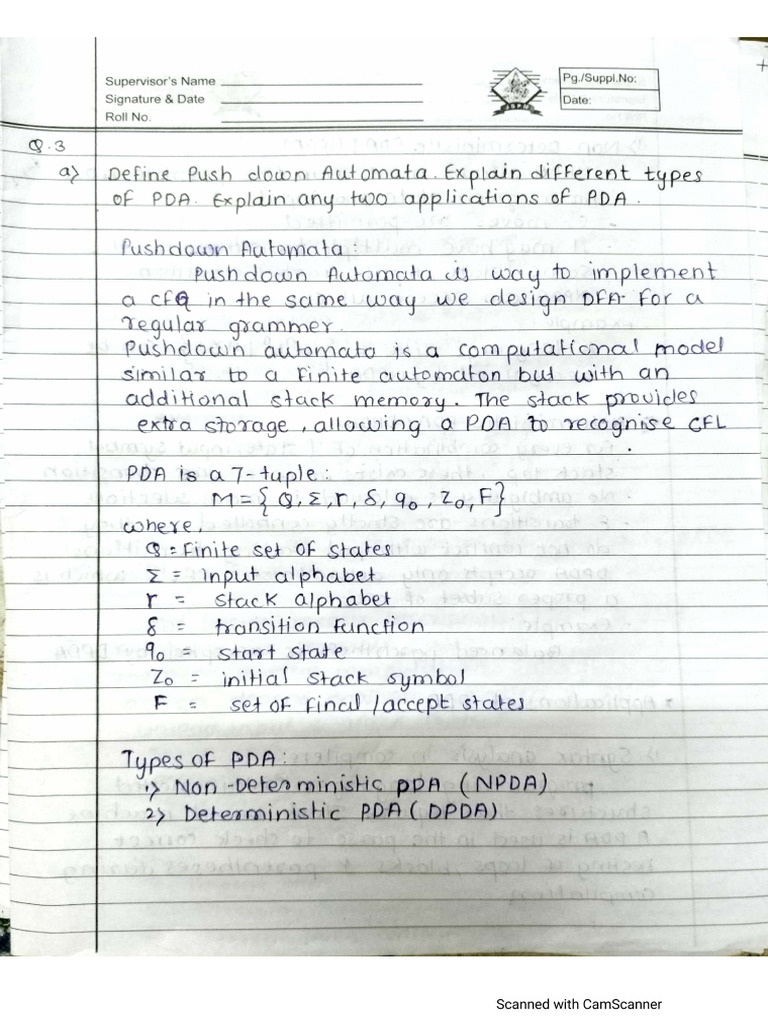 Supervisor's Name
Signature & Date
Roll No.
Pg./Suppl.No:
Date:
Q.3
a) Define Push down Automata. Explain different types
of PDA. Explain any two applications of PDA.
Pushdown Automata:
Pushdown Automata is way to implement
a CFG in the same way we design DFA for a
regular grammer.
Pushdown automata is a computational model
similar to a finite automaton but with an
additional stack memory. The stack provides
extra storage, allowing a PDA to recognise CFL
.
PDA is a 7-tuple:
M = { Q, Σ, Γ, δ, q0, Z0, F}
where,
Q = Finite set of states
Σ = input alphabet
Γ = stack alphabet
δ = transition function
q0 = start state
Z0 = initial stack symbol
F = set of final / accept states
Types of PDA:
1) Non-Deterministic PDA (NPDA)
2) Deterministic PDA (DPDA)
Scanned with CamScanner